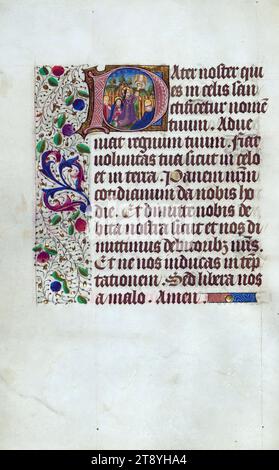 Pater noster qui
es in celis san
ctificetur nomē
tuum. Adue
niat regnum tuum. Fiat
voluntas tua sicut in celo
et in terra. Panem nr̄m
cotidianum da nobis ho
die. Et dimitte nobis de
bita nostra sicut et nos di
mittimus debitorib; nr̄is.
Et ne nos inducas in tēp
tationem. Sed libera nos
a malo. Amen.
alamy
Image ID: 2T8YHA4
www.alamy.com